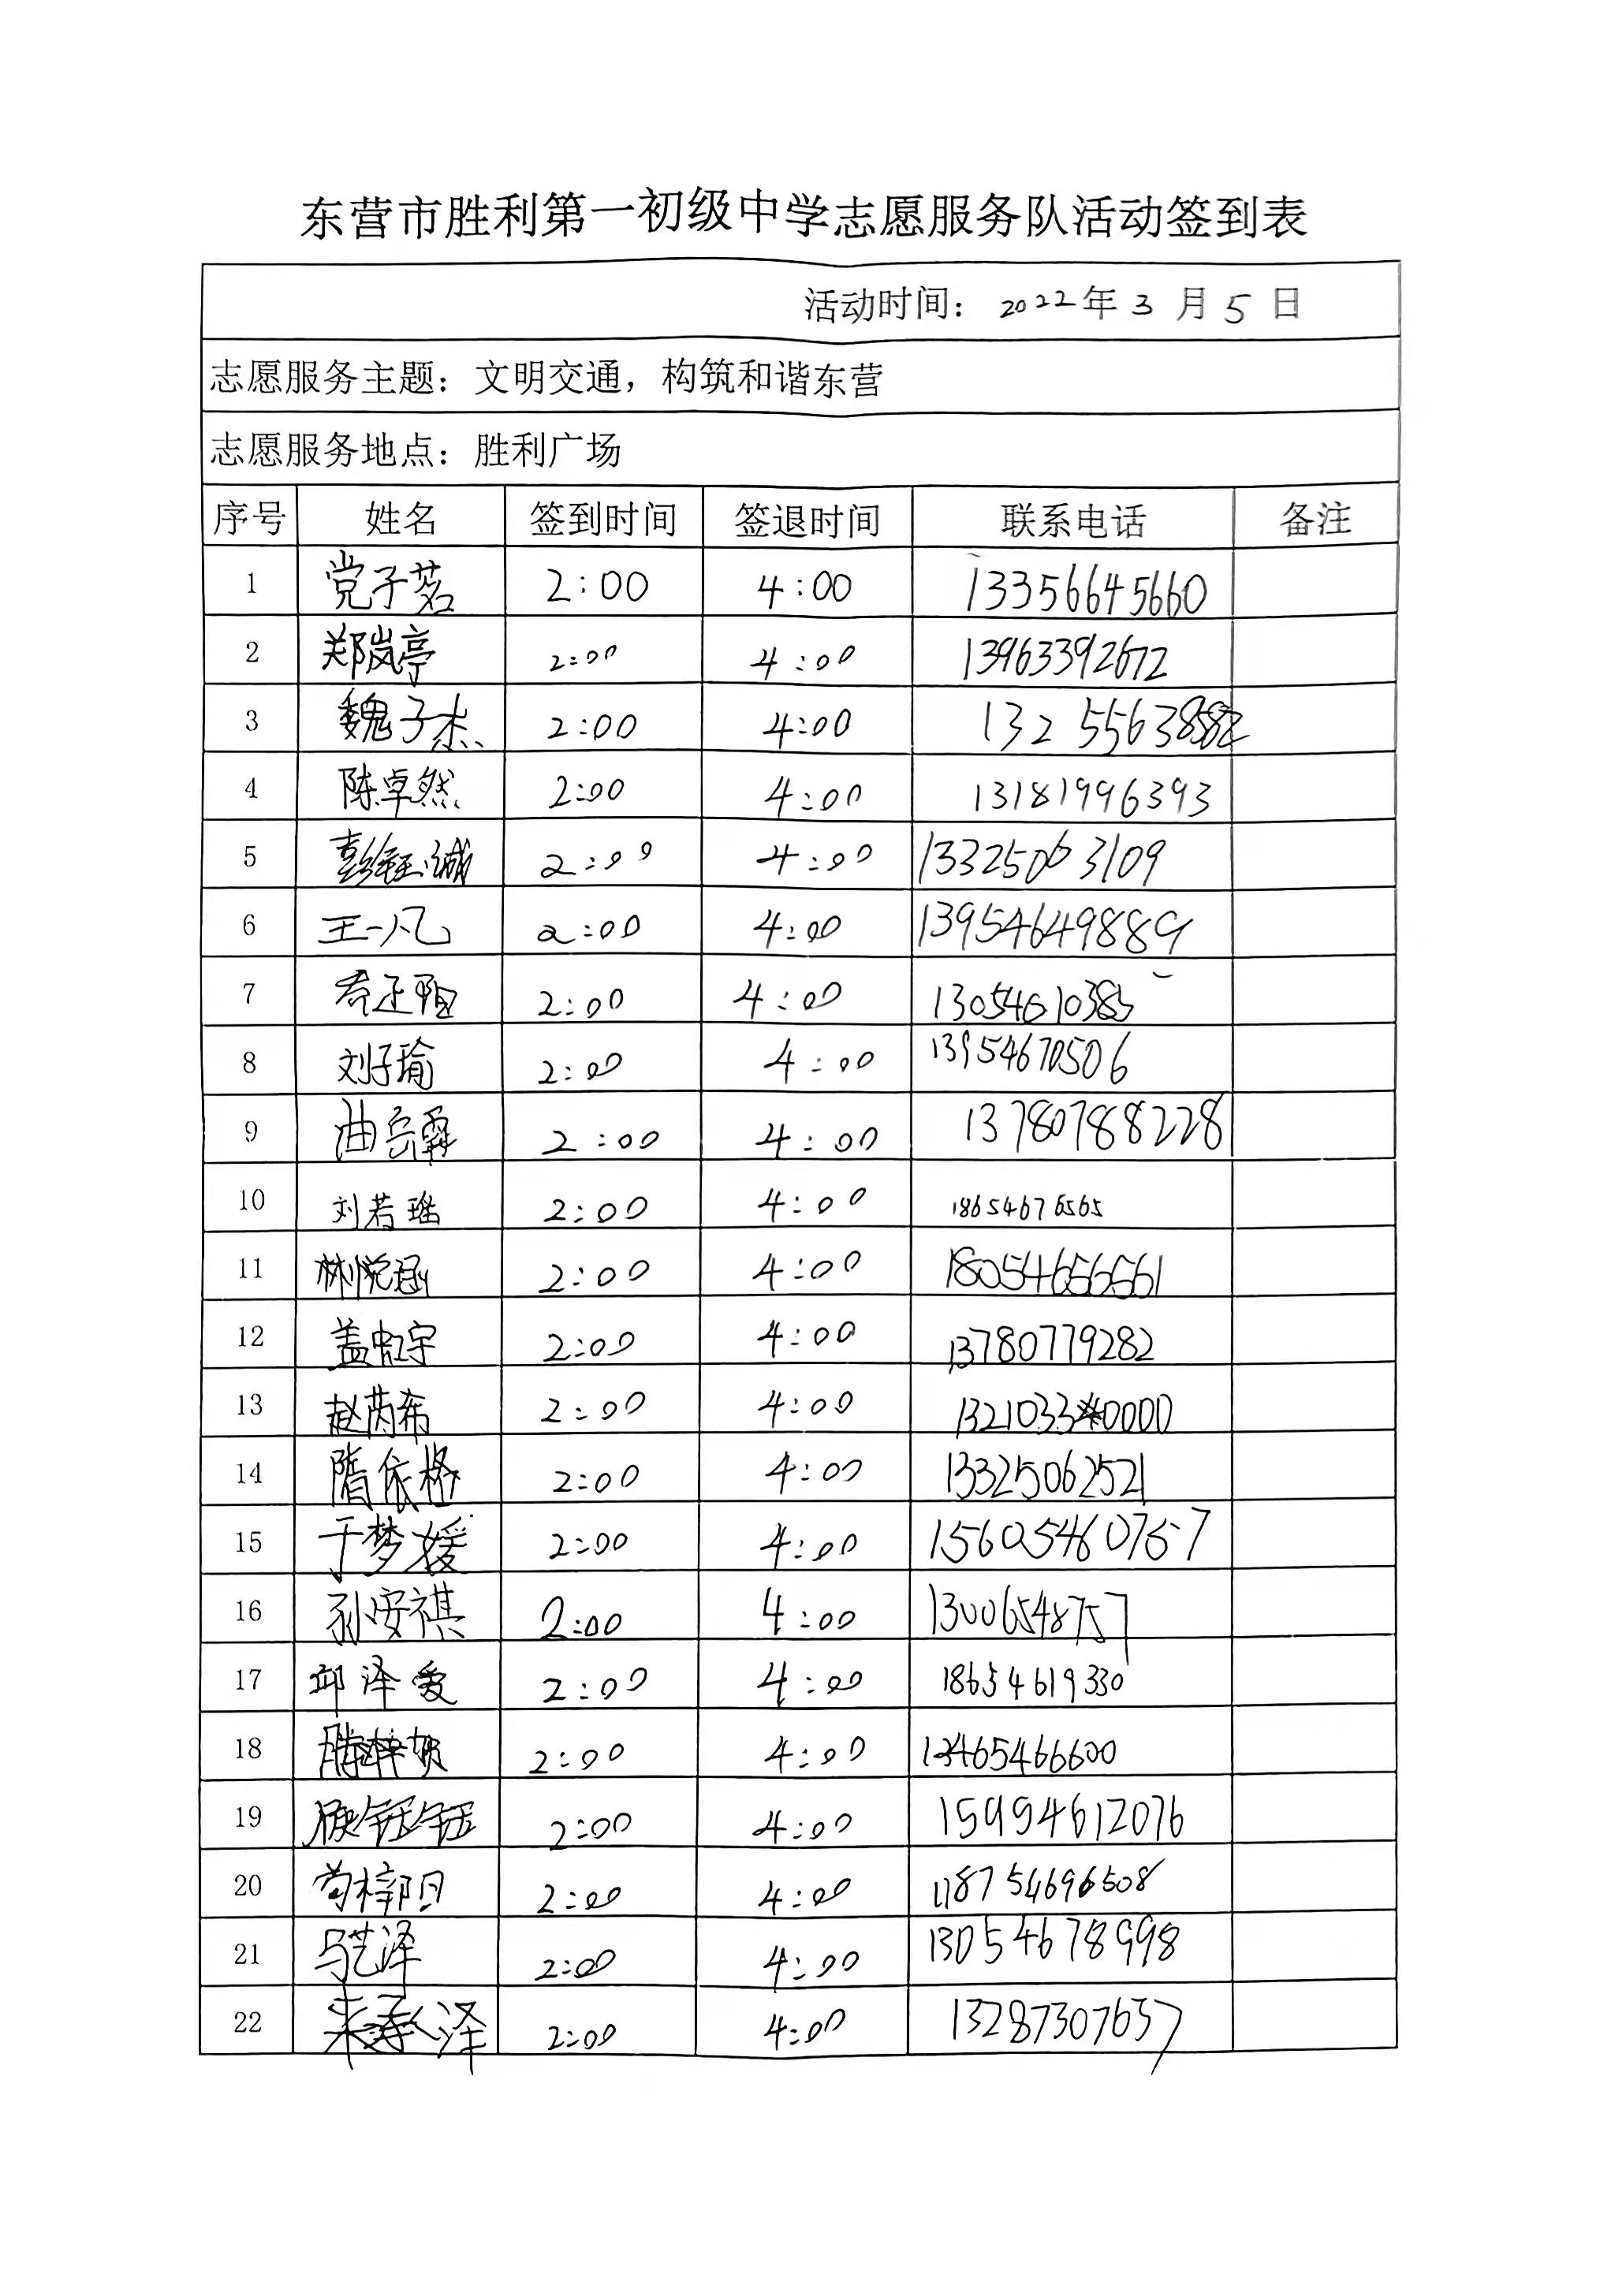 东营市胜利第一初级中学志愿服务队活动签到表
活动时间：2022年3月5日
志愿服务主题：文明交通，构筑和谐东营
志愿服务地点：胜利广场
序号 姓名 签到时间 签退时间 联系电话 备注
1 党子茗 2:00 4:00 13356645660
2 郑岚亭 2:00 4:00 13963392672
3 魏子杰 2:00 4:00
4 陈卓然 2:00 4:00 13181996393
5 彭钰诚 2:00 4:00 13325063109
6 王一凡 2:00 4:00 13954649889
7 2:00 4:00 13054610385
8 刘子瑜 2:00 4:00 13954670506
9 曲 霖 2:00 4:00 13780788228
10 刘若瑶 2:00 4:00 18654676565
11 林悦涵 2:00 4:00 18054656561
12 盖虹宇 2:00 4:00 13780779282
13 赵芮希 2:00 4:00
14 隋依格 2:00 4:00 13325062521
15 于梦媛 2:00 4:00 15605460757
16 孙安祺 2:00 4:00 13006548757
17 邱泽爱 2:00 4:00 18654619330
18 2:00 4:00
19 钰钰 2:00 4:00 15994612076
20 2:00 4:00 18754696508
21 马艺泽 2:00 4:00 13054678998
22 泽 2:00 4:00 13287307657